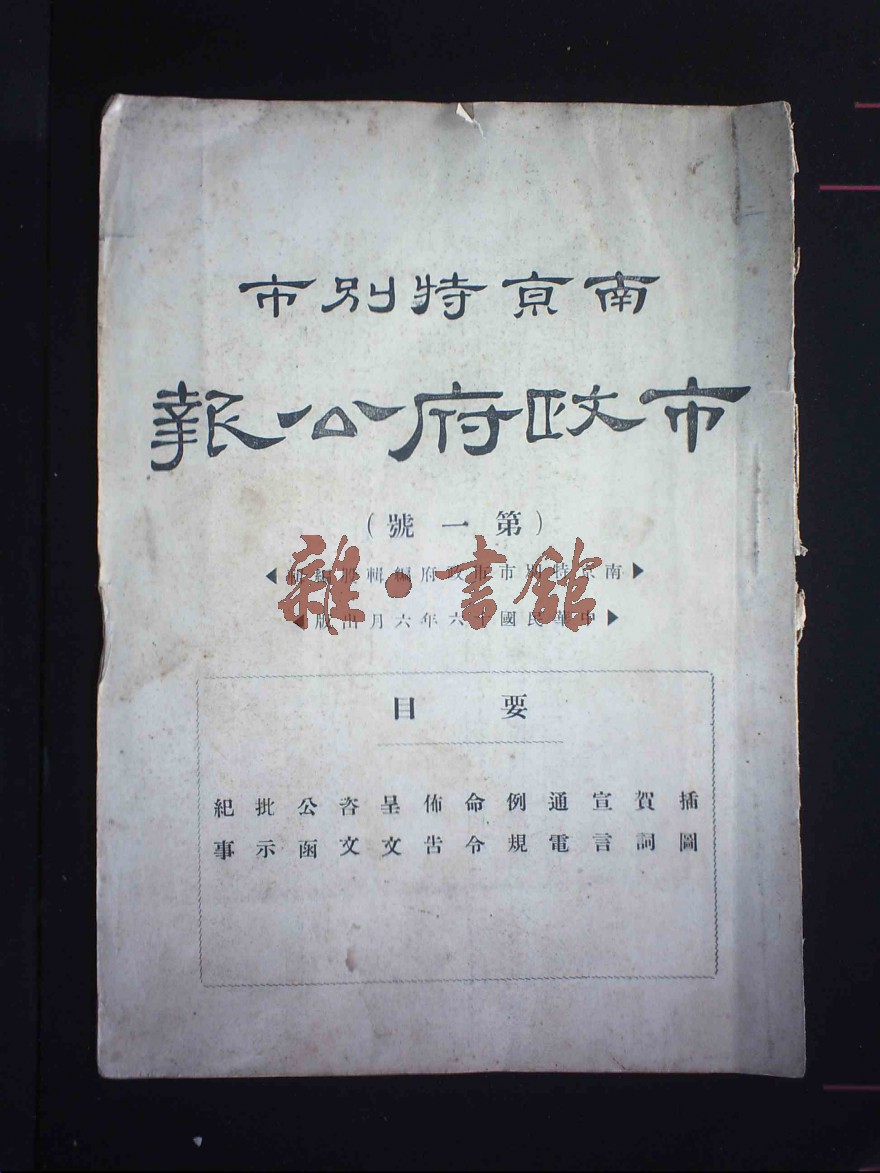 南京特別市
市政府公報
（第一號）
南京特別市市政府編輯股編
中華民國十六年六月出版
雜·書館
要目
插圖
賀詞
宣言
通電
例規
命令
佈告
呈文
咨文
公函
批示
紀事